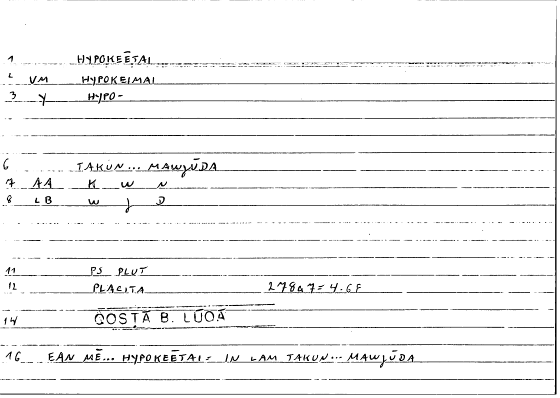 1 HYPOKEĒTAI
2 VM HYPOKEIMAI
3 Y HYPO-
6 TAKUN... MAWJŪDA
7 AA K W N
8 LB W J D
11 PS PLUT
12 PLACITA 278a7 = 4.6F
14 QOSṬĀ B. LŪQĀ
16 EAN MĒ... HYPOKEĒTAI = IN LAM TAKUN... MAWJŪDA